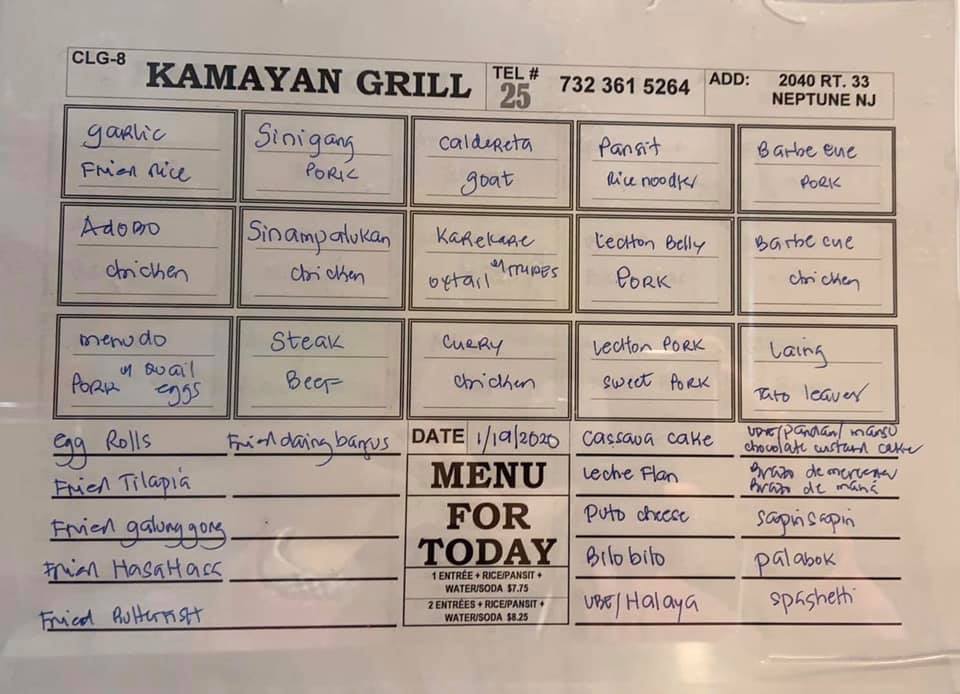 CLG-8
KAMAYAN GRILL
TEL #
25
732 361 5264
ADD:
2040 RT. 33
NEPTUNE NJ
garlic
Fried rice
Sinigang
PORK
caldereta
goat
Pansit
Rice noodles
Barbe cue
PORK
Adobo
chicken
Sinampalukan
chicken
Karekare
oxtail w/TRIPES
Lechon Belly
PORK
Barbe cue
chicken
menudo
PORK w/ Quail
eggs
Steak
BEEF
CURRY
chicken
Lechon PORK
sweet PORK
Laing
Taro leaves
egg Rolls
Fried daing bangus
Fried Tilapia
Fried galunggong
Fried HasaHasa
Fried
DATE
1/19/2020
MENU
FOR
TODAY
1 ENTRÉE + RICE/PANSIT +
WATER/SODA $7.75
2 ENTRÉES + RICE/PANSIT +
WATER/SODA $8.25
cassava cake
UBE/Pandan/mango
chocolate custard cake
Leche Flan
Brazo de mercedes
Brazo de maná
Puto cheese
sapin sapin
Bilobilo
palabok
UBE/Halaya
spaghetti